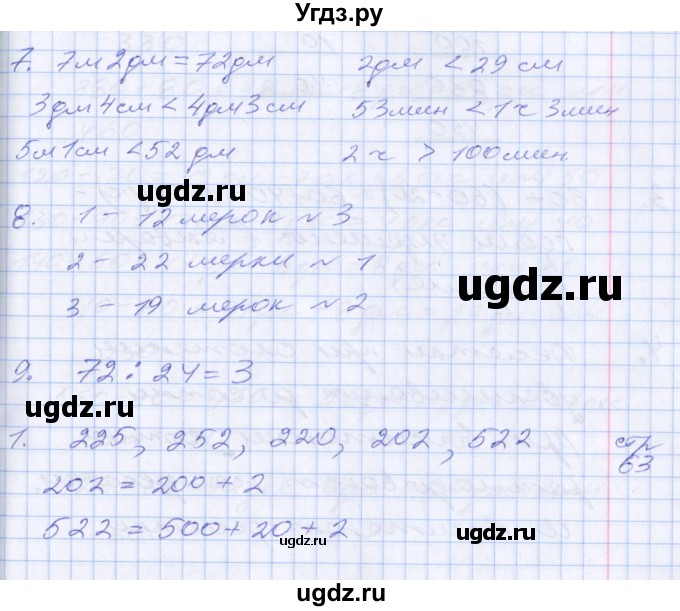 Угдз.ру
7. 7м 2дм = 72дм 2дм < 29 см
3дм 4см < 4дм 3см 53мин < 1ч 3мин
5м 1см < 52 дм 2 ч > 100мин.
ugdz.ru
8. 1 – 12 мерок ~ 3
2 – 22 мерки ~ 1
ugdz.ru
3 – 19 мерок ~ 2
9. 72 : 24 = 3
ugdz.ru
1. 225, 252, 220, 202, 522 стр 63
202 = 200 + 2
522 = 500 + 20 + 2
ugdz.ru
ugdz.ru
ugdz.ru
ugdz.ru